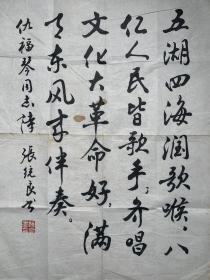 五湖四海润歌喉,八
亿人民皆歌手;齐唱
文化大革命好,满
天东风来伴奏。
仇福琴同志诗 张统良书